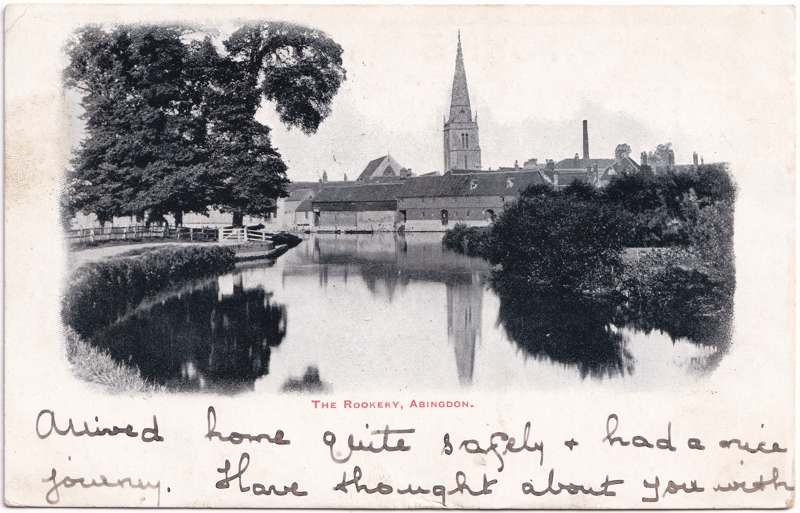 THE ROOKERY, ABINGDON.
Arrived home quite safely + had a nice
journey. Have thought about you with